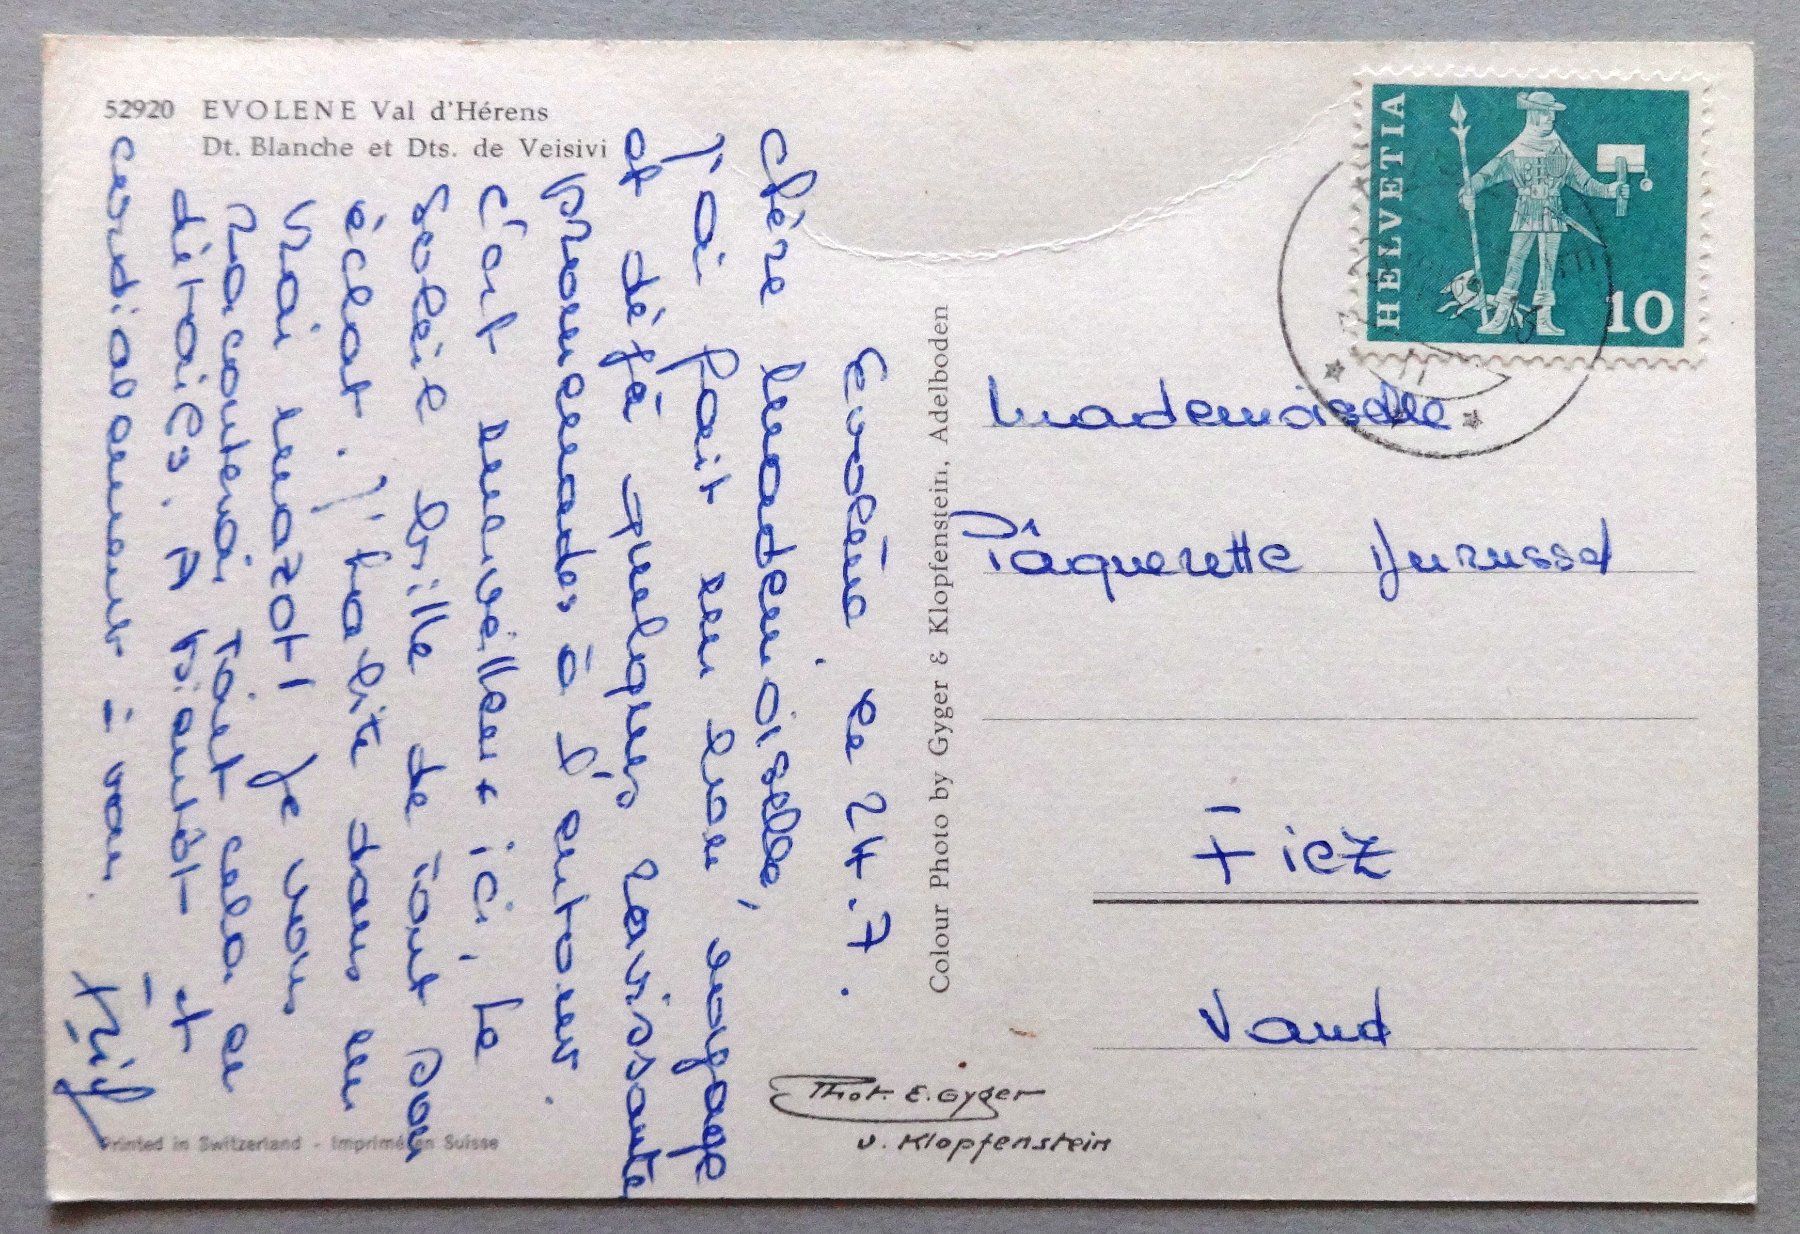 52920 EVOLENE Val d'Hérens
Dt. Blanche et Dts. de Veisivi
Evolène le 24.7.
Chère Mademoiselle,
J'ai fait un bon voyage
et déjà quelques ravissante
promenades à l'entour.
C'est merveilleux ici, le
soleil brille de tout son
éclat. J'habite dans un
vrai mazot! Je vous
raconterai tout cela en
détails. A bientôt et
cordialement à vous
Colour Photo by Gyger & Klopfenstein, Adelboden
HELVETIA
10
Mademoiselle
Pâquerette Durussel
Fiez
Vaud
Phot. E. Gyger
u. Klopfenstein
Printed in Switzerland - Imprimé en Suisse